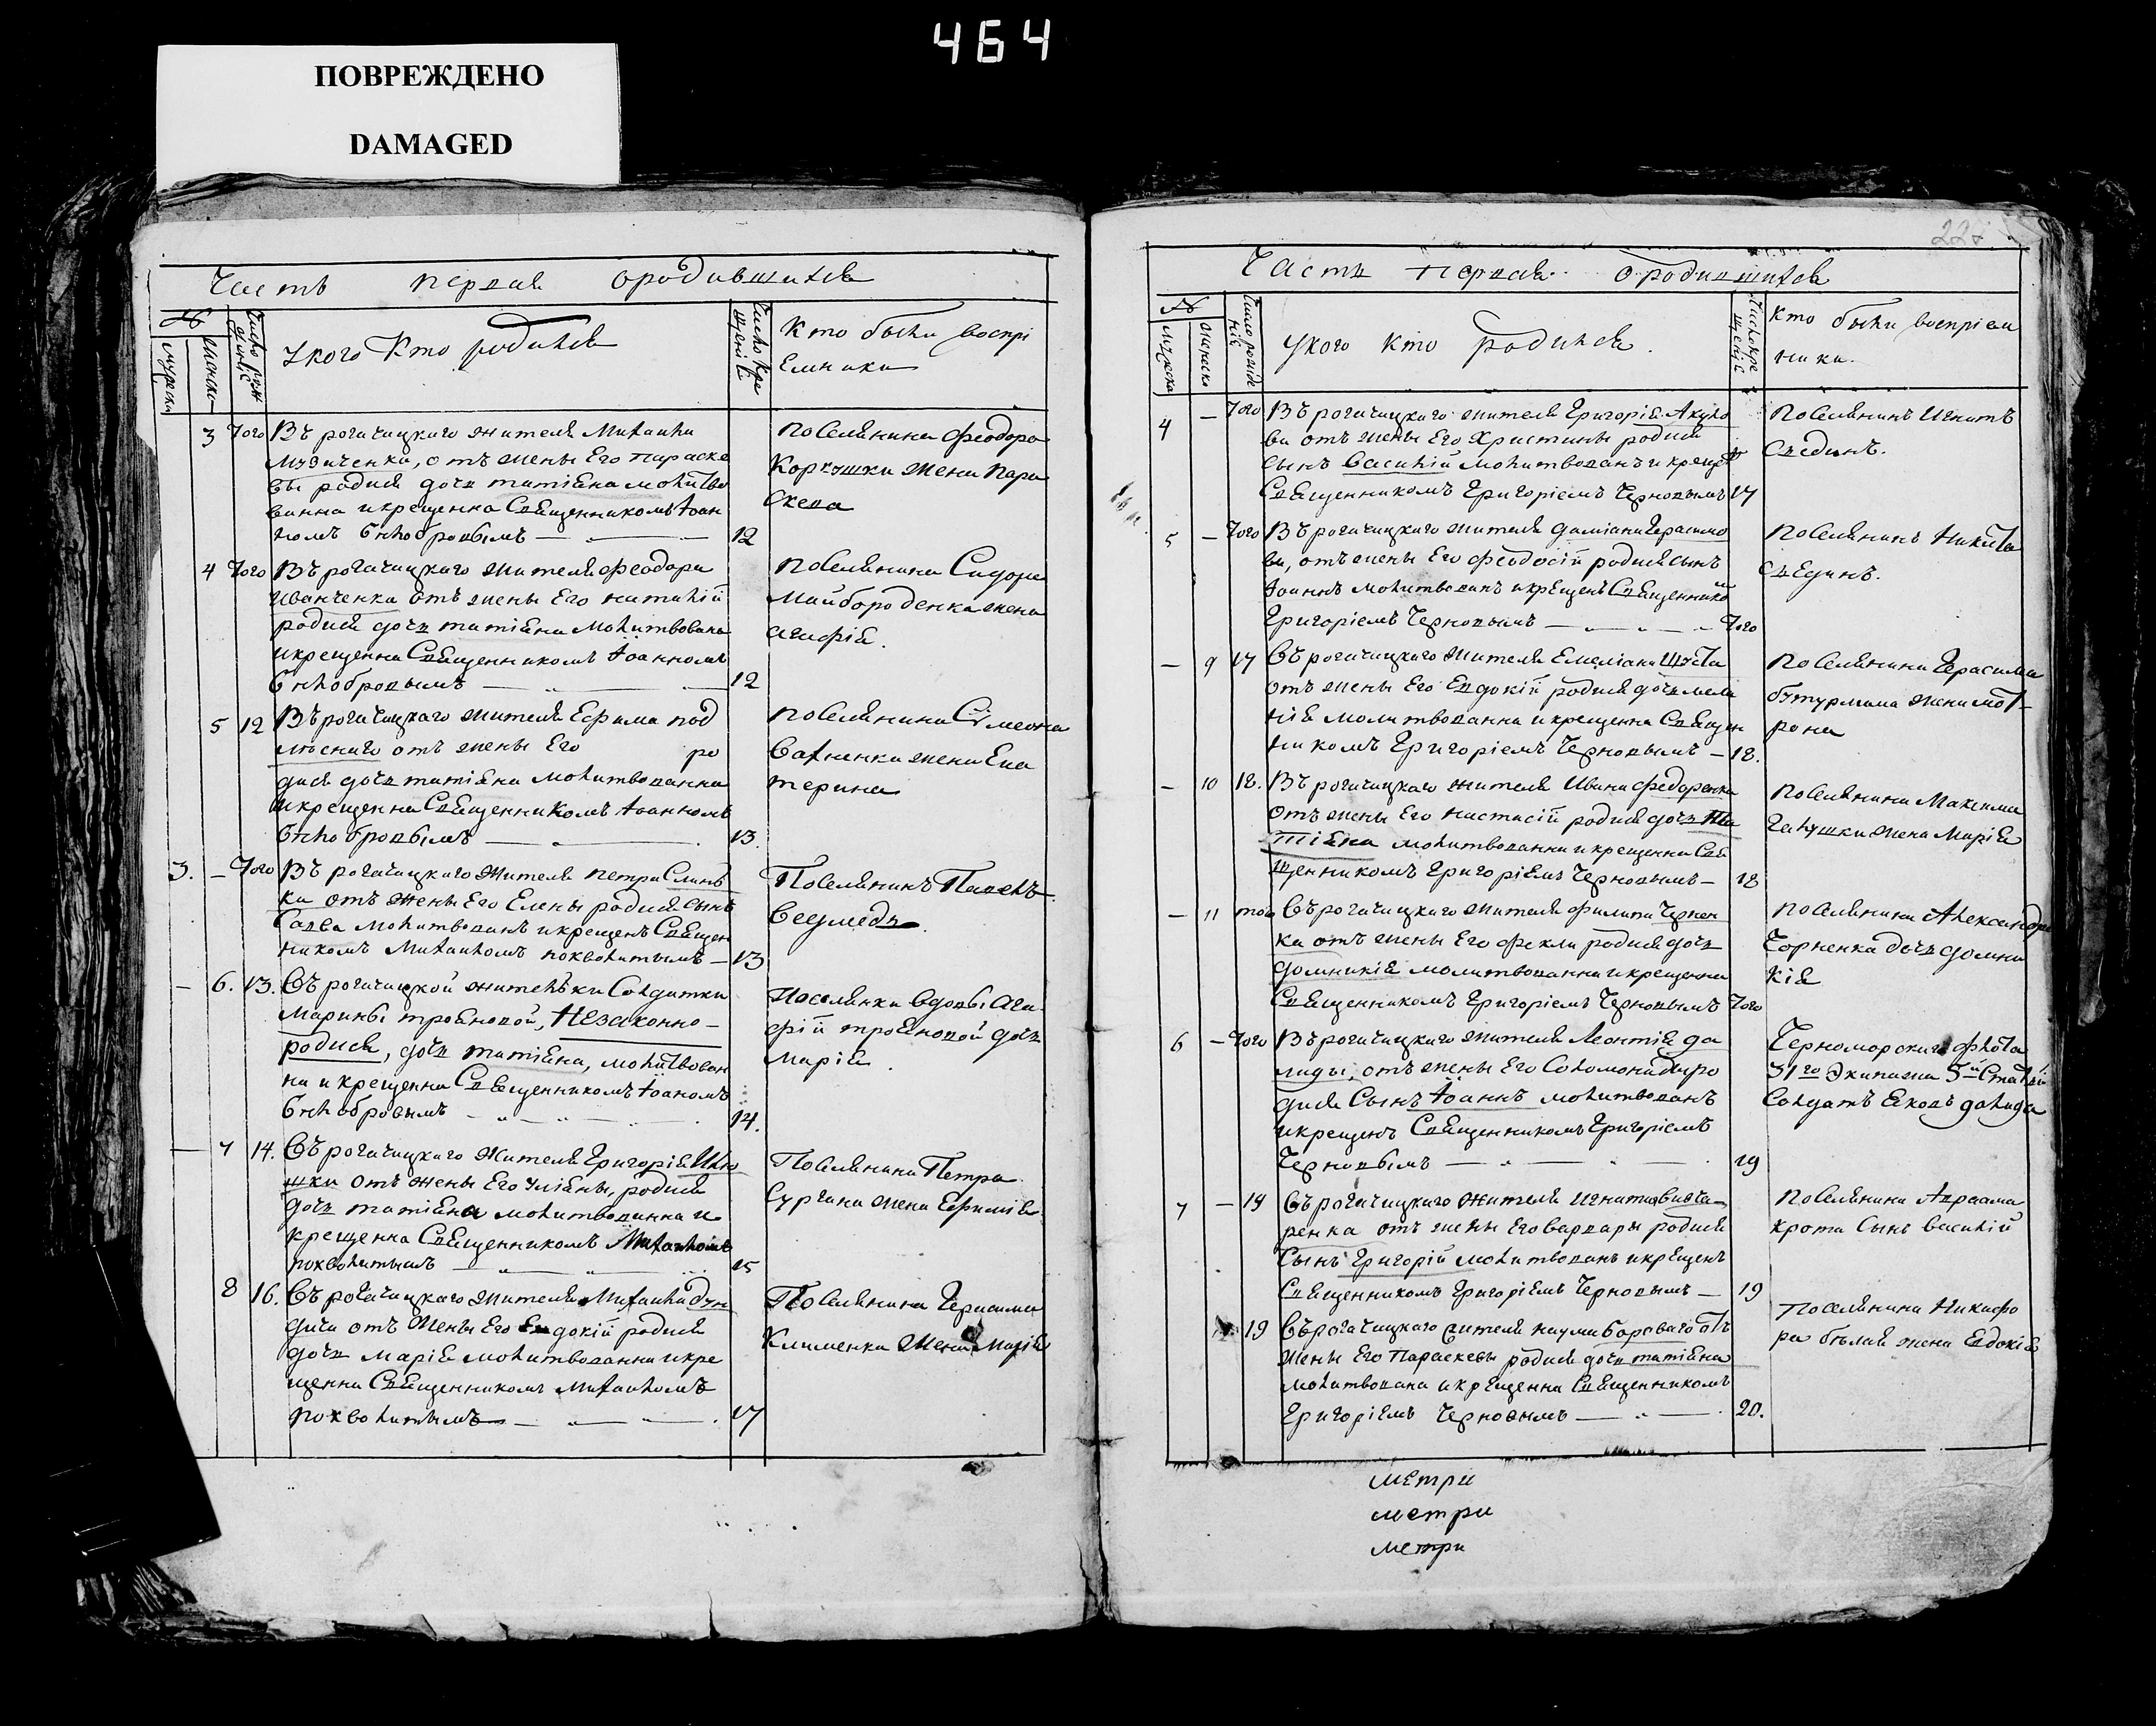 464
ПОВРЕЖДЕНО
DAMAGED
Часть первая о родившихся
№
мужеска
женска
Число рожденія
У кого кто родился
Число крещенія
Кто были воспрі
емники
3 Того Въ рогачицкаго жителя Михаила
Музиченка, отъ жены Его параске
вы родися дочь татіяна молитво
ванна и крещенна Священникомъ Іоан
номъ Бѣлобровымъ 12
поселянина Феодора
Коркушки жена пара
скева
4 Того Въ рогачицкаго жителя Феодора
Иванченка отъ жены Его наталіи
родися дочь татіяна молитвована
и крещенна Священникомъ Іоанномъ
Бѣлобровымъ 12
поселянина Сидора
Майбороденка жена
агафія.
5 12 Въ рогачицкаго жителя Ефима под
лѣснаго отъ жены Его ро
дися дочь татіяна молитвованна
и крещенна Священникомъ Іоанномъ
Бѣлобровымъ 13.
поселянина Сімеона
Вахненка жена Ека
терина
3. — Того Въ рогачицкаго жителя петра Слинь
ка отъ жены Его Елены родися сынъ
Савва молитвованъ и крещенъ Священ
никомъ Михаиломъ похвалитымъ — 13
Поселянинъ Павелъ
Ведмедь.
— 6. 13. Въ рогачицкой жительки Солдатки
Марины трояновой, Незаконно-
родися, дочь татіяна, молитвован
на и крещенна Священникомъ Іоаномъ
Бѣлобровымъ 14.
Поселянки вдовы Ага
фіи трояновой дочь
Марія
— 7 14. Въ рогачицкаго жителя Григорія Илю
шки отъ жены Его уліяны, родися
дочь татіяна молитвованна и
крещенна Священникомъ Михаиломъ
похвалитымъ 15
Поселянина Петра
Сургана жена Ефимія
8 16. Въ рогачицкаго жителя Михаила дун
дича отъ жены Его Евдокіи родися
дочь Марія молитвованна и кре
щенна Священникомъ Михаиломъ
похвалитымъ 17
Поселянина Герасима
Клименка жена Марія
Часть первая о родившихся
№
мужеска
женска
Число рожденія
У кого кто родился.
Число крещенія
Кто были воспріем
ники.
4 — Того Въ рогачицкаго жителя Григорія Акуло
ва отъ жены Его Христины родися
сынъ Василій молитвованъ и крещенъ
Священникомъ Григоріемъ Черновымъ 17
поселянинъ Игнатъ
Сѣединъ.
5 — Того Въ рогачицкаго жителя даміана Герасимо
ва, отъ жены Его феодосіи родися сынъ
Іоаннъ молитвованъ и крещенъ Священнико
Григоріемъ Черновымъ — Того
поселянинъ Никита
Сѣединъ.
— 9 17 Въ рогачицкаго жителя Емеліана Шуста
отъ жены Его Евдокіи родися дочь мела
нія молитвованна и крещенна Священ
никомъ Григоріемъ Черновымъ — 18.
поселянина Герасима
бутурлима жена мот-
рона
— 10 18. Въ рогачицкаго жителя Ивана федоренка
отъ жены Его настасіи родися дочь та
тіяна молитвованна и крещенна Свя
щенникомъ Григоріемъ Черновымъ — 18
поселянина Максима
Галушки жена Марія
— 11 того Въ рогачицкаго жителя филипа Чернен
ка отъ жены Его феклы родися дочь
домникія молитвованна и крещенна
Священникомъ Григоріемъ Черновымъ Того
поселянина Александра
Чорненка дочь домни
кія
6 — Того Въ рогачицкаго жителя Леонтія да
лиды, отъ жены Его Соломониды ро
дися Сынъ Іоаннъ молитвованъ
и крещенъ Священникомъ Григоріемъ
Черновымъ 19
Черноморскаго флота
31го Экипажа 5й Статьи
Солдатъ Яковъ далида
7 — 19 Въ рогачицкаго жителя игната Вивча-
ренка отъ жены Его варвары родися
Сынъ Григорій молитвованъ и крещенъ
Священникомъ Григоріемъ Черновымъ — 19
поселянина Авраама
крота Сынъ Василій
19 Въ рогачицкаго жителя наума Бороваго отъ
жены Его Параскевы родися дочь татіяна
молитвована и крещенна Священникомъ
Григоріемъ Черновымъ 20.
Поселянина Никифо
ра бѣлая жена Евдокія
метри
метри
метри